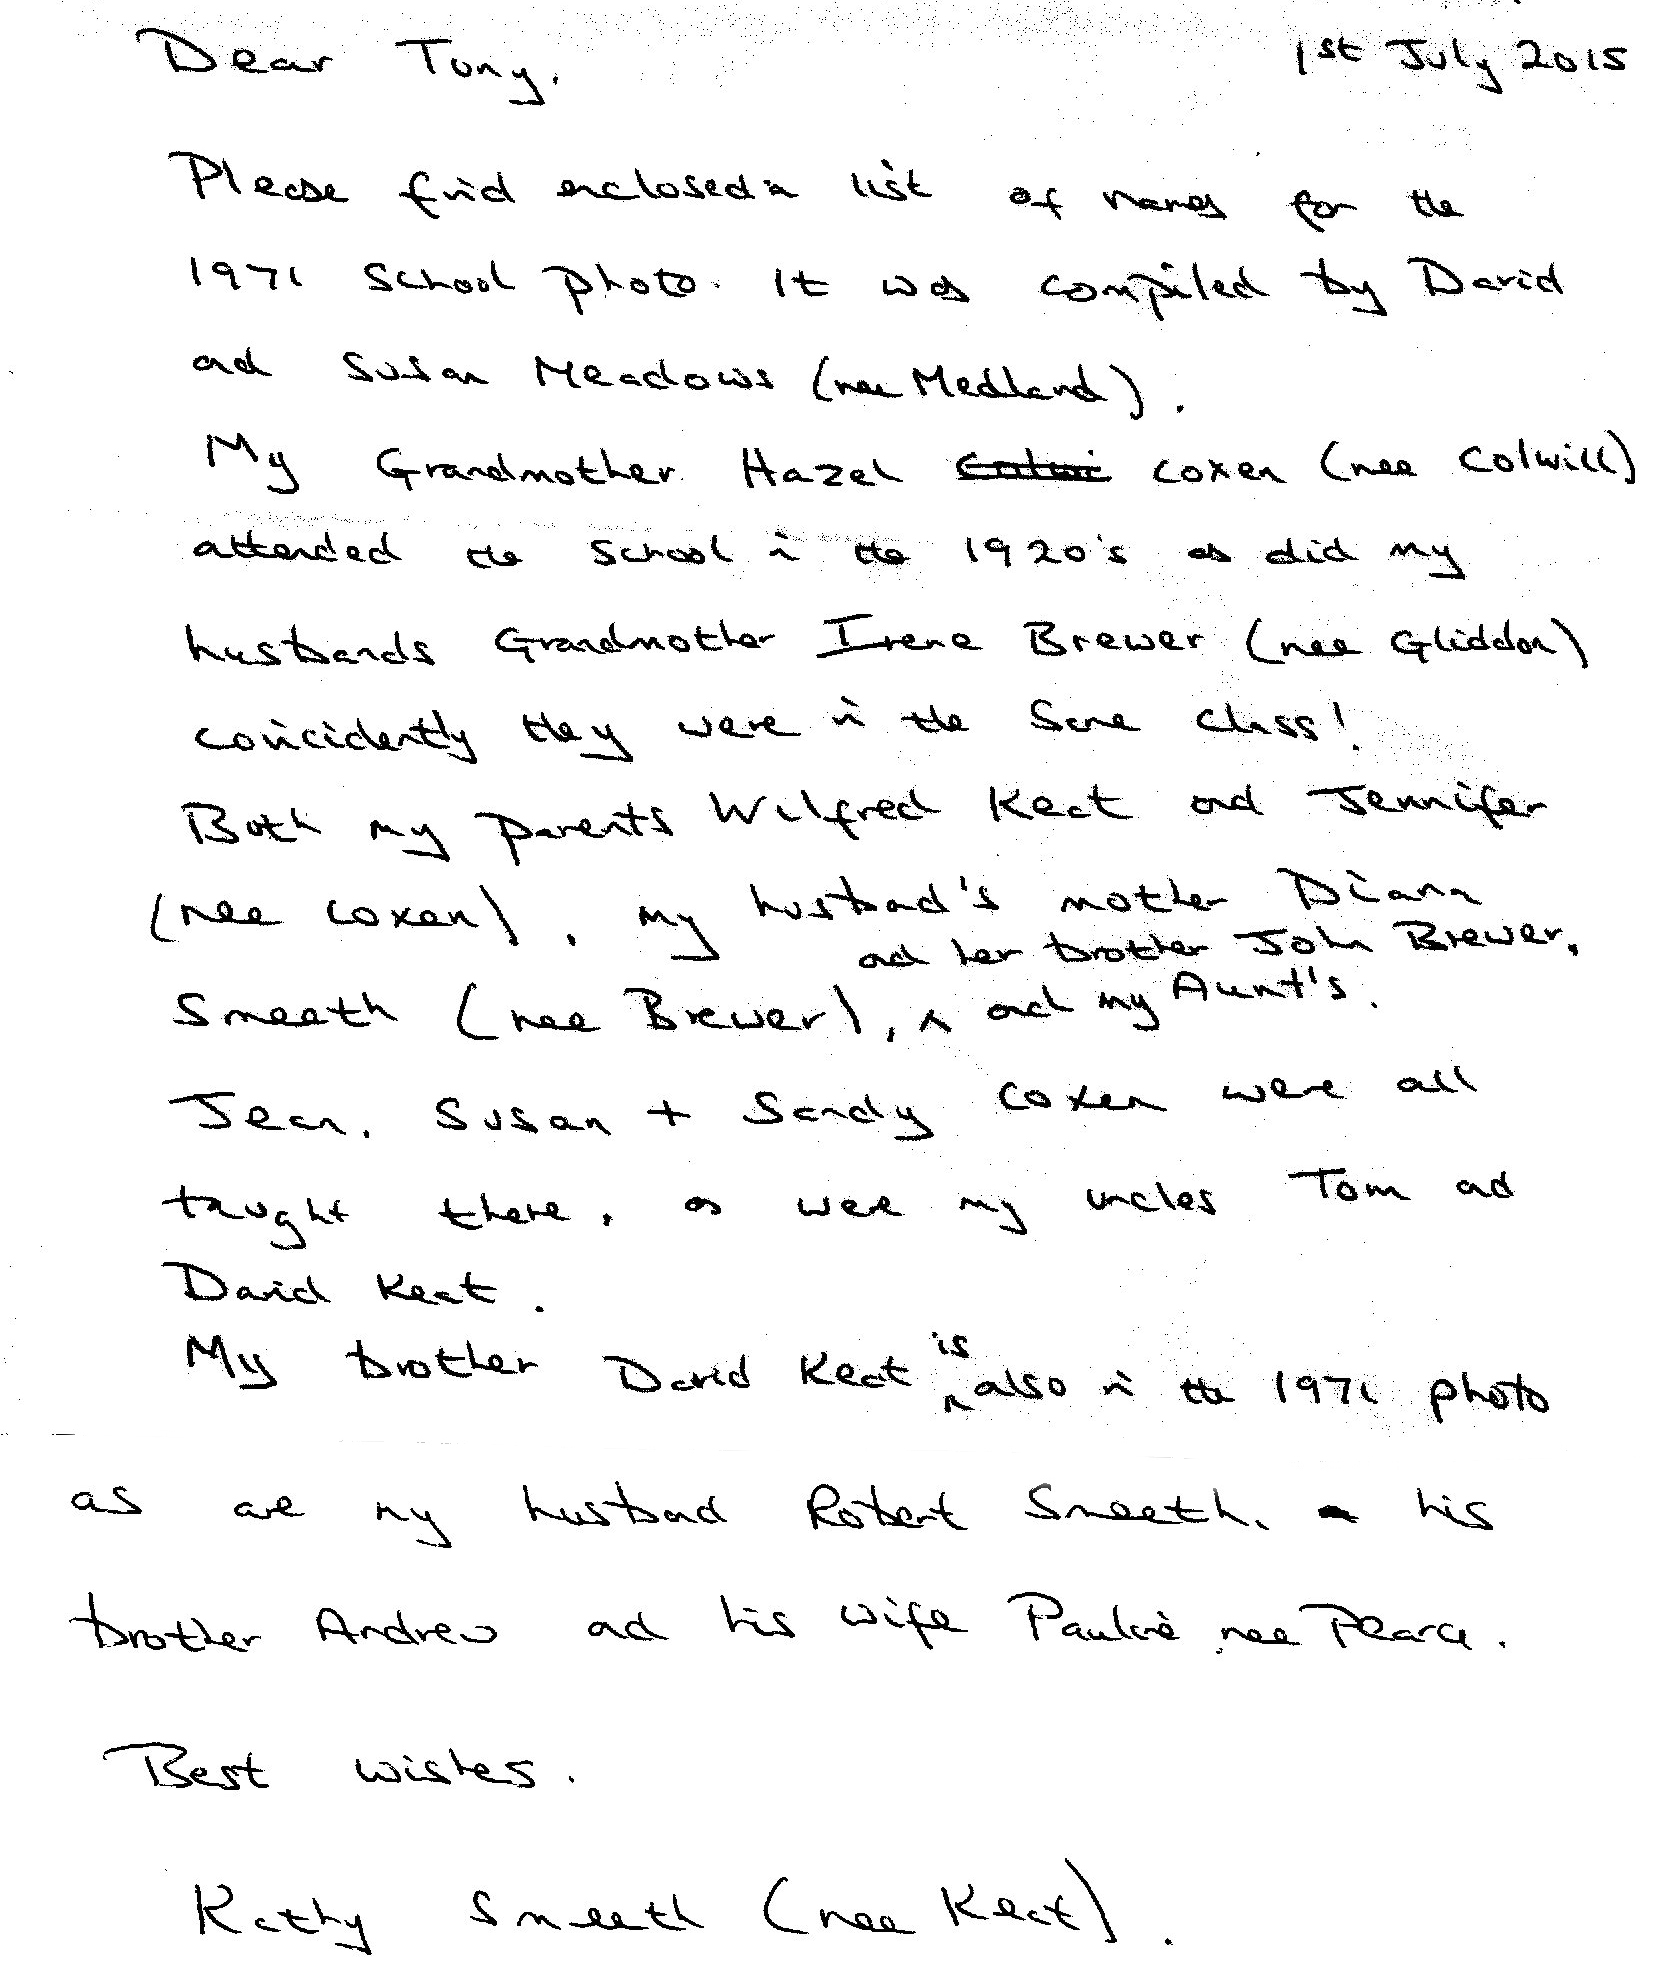 Dear Tony, 1st July 2015
Please find enclosed a list of names for the
1971 School photo. It was compiled by David
and Susan Meadows (nee Medland).
My Grandmother Hazel Coxen (nee Colwill)
attended the School in the 1920's as did my
husbands Grandmother Irene Brewer (nee Gliddon)
coincidently they were in the Same class!
Both my parents Wilfred Keat and Jennifer
(nee Coxen), my husband's mother Diana
and her brother John Brewer,
Smeeth (nee Brewer), ^ and my Aunt's.
Jean, Susan + Sandy Coxen were all
taught there, as were my uncles Tom and
David Keat.
is
My brother David Keat ^ also in the 1971 photo
as are my husband Robert Smeeth, his
brother Andrew and his wife Pauline nee Pearce.
Best wishes.
Kathy Smeeth (nee Keat).